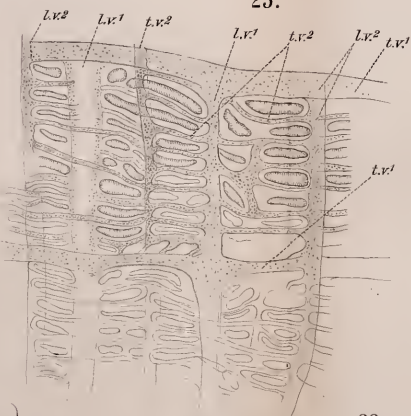 25.
l.v.² l.v.¹ t.v.² l.v.¹ t.v.² l.v.² t.v.¹
t.v.¹